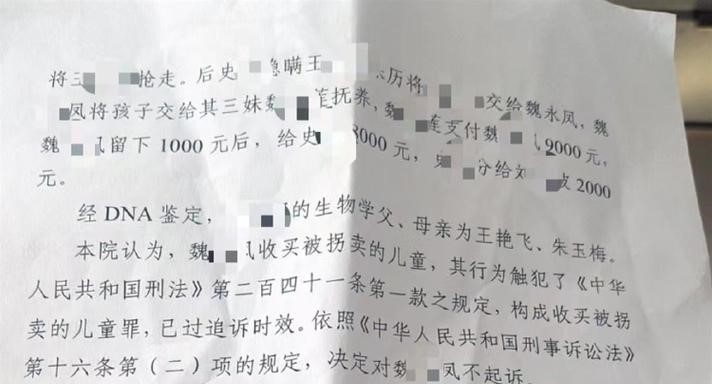 将王抢走。后史隐瞒王来历将交给魏永凤,魏
凤将孩子交给其三妹魏莲抚养,魏莲支付魏凤9000元,
魏凤留下1000元后,给史8000元,史分给刘2000
元。
经DNA鉴定,的生物学父、母亲为王艳飞、朱玉梅。
本院认为,魏凤收买被拐卖的儿童,其行为触犯了《中华
人民共和国刑法》第二百四十一条第一款之规定,构成收买被拐
卖的儿童罪,已过追诉时效。依照《中华人民共和国刑事诉讼法》
第十六条第(二)项的规定,决定对魏凤不起诉。